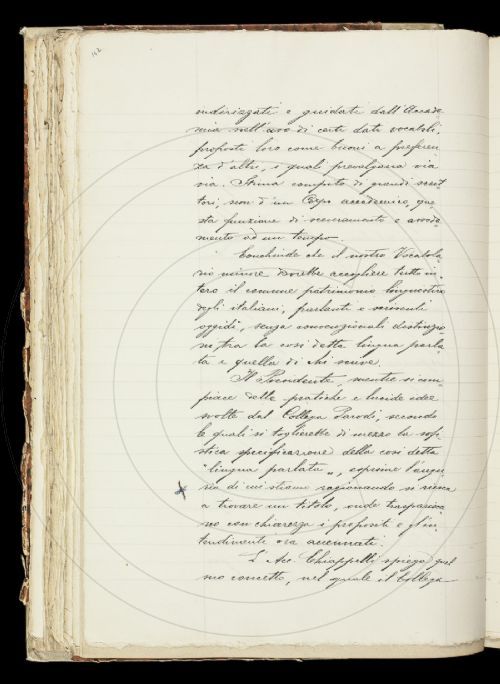 162
indirizzati e guidati dall'Accade-
mia nell'uso di certi dati vocaboli,
proposti loro come buoni a preferen-
za d'altri, i quali prevalgano via
via. Stima compito di grandi scrit-
tori, non d'un Corpo accademico, que-
sta funzione di sceveramento e accode-
mento ad un tempo.
Conchiude che il nostro Vocabola-
rio minore dovrebbe accogliere tutto in-
tero il comune patrimonio linguistico
degli italiani, parlanti e scriventi
oggidì, senza convenzionali distinzio-
ni, tra la così detta lingua parla-
ta e quella di chi scrive.
Il Presidente, mentre si com-
piace delle pratiche e lucide idee
svolte dal Collega Parodi, secondo
le quali si toglierebbe di mezzo la sofi-
stica specificazione della così detta
"lingua parlata", esprime l'augu-
rio di cui stiamo ragionando si riesca
a trovare un titolo, onde traspaia-
no con chiarezza i propositi e gl'in-
tendimenti ora accennati.
L'Acc. Chiappelli spiega quel
suo concetto, nel quale il Collega